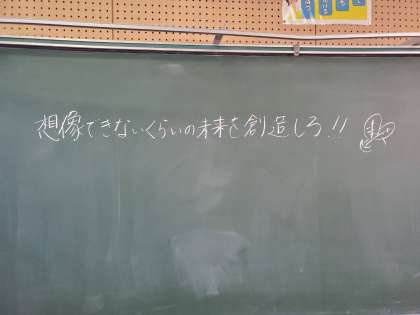 想像できないくらいの未来を創造しろ!!